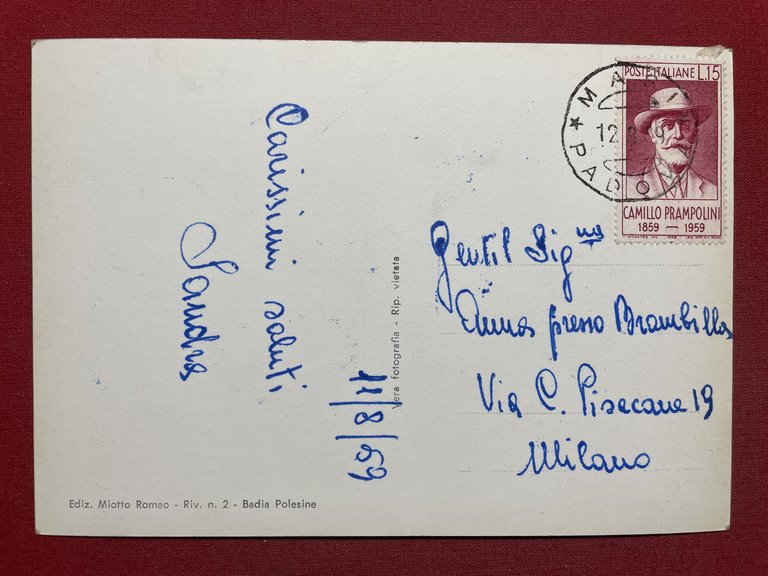 POSTE ITALIANE L.15
CAMILLO PRAMPOLINI
1859 — 1959
★ PADOV
12
Carissimi saluti
Sandra
11/8/59
Vera fotografia - Rip. vietata
Gentil Signa
Anna presso Brambilla
Via C. Pisacane 19
Milano
Ediz. Miotto Romeo - Riv. n. 2 - Badia Polesine